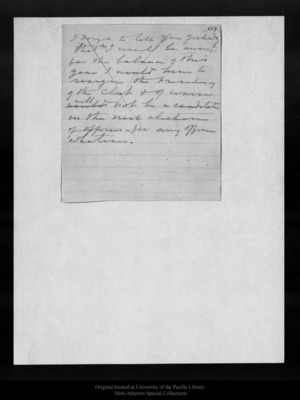 I forgot to tell you
that I would be away
for the balance of this
year I would have to
resign the Presidency
of the Club & of course
would not be a candidate
in the next election
of officers - for any office
whatever.
Original located at University of the Pacific Library
Holt-Atherton Special Collections